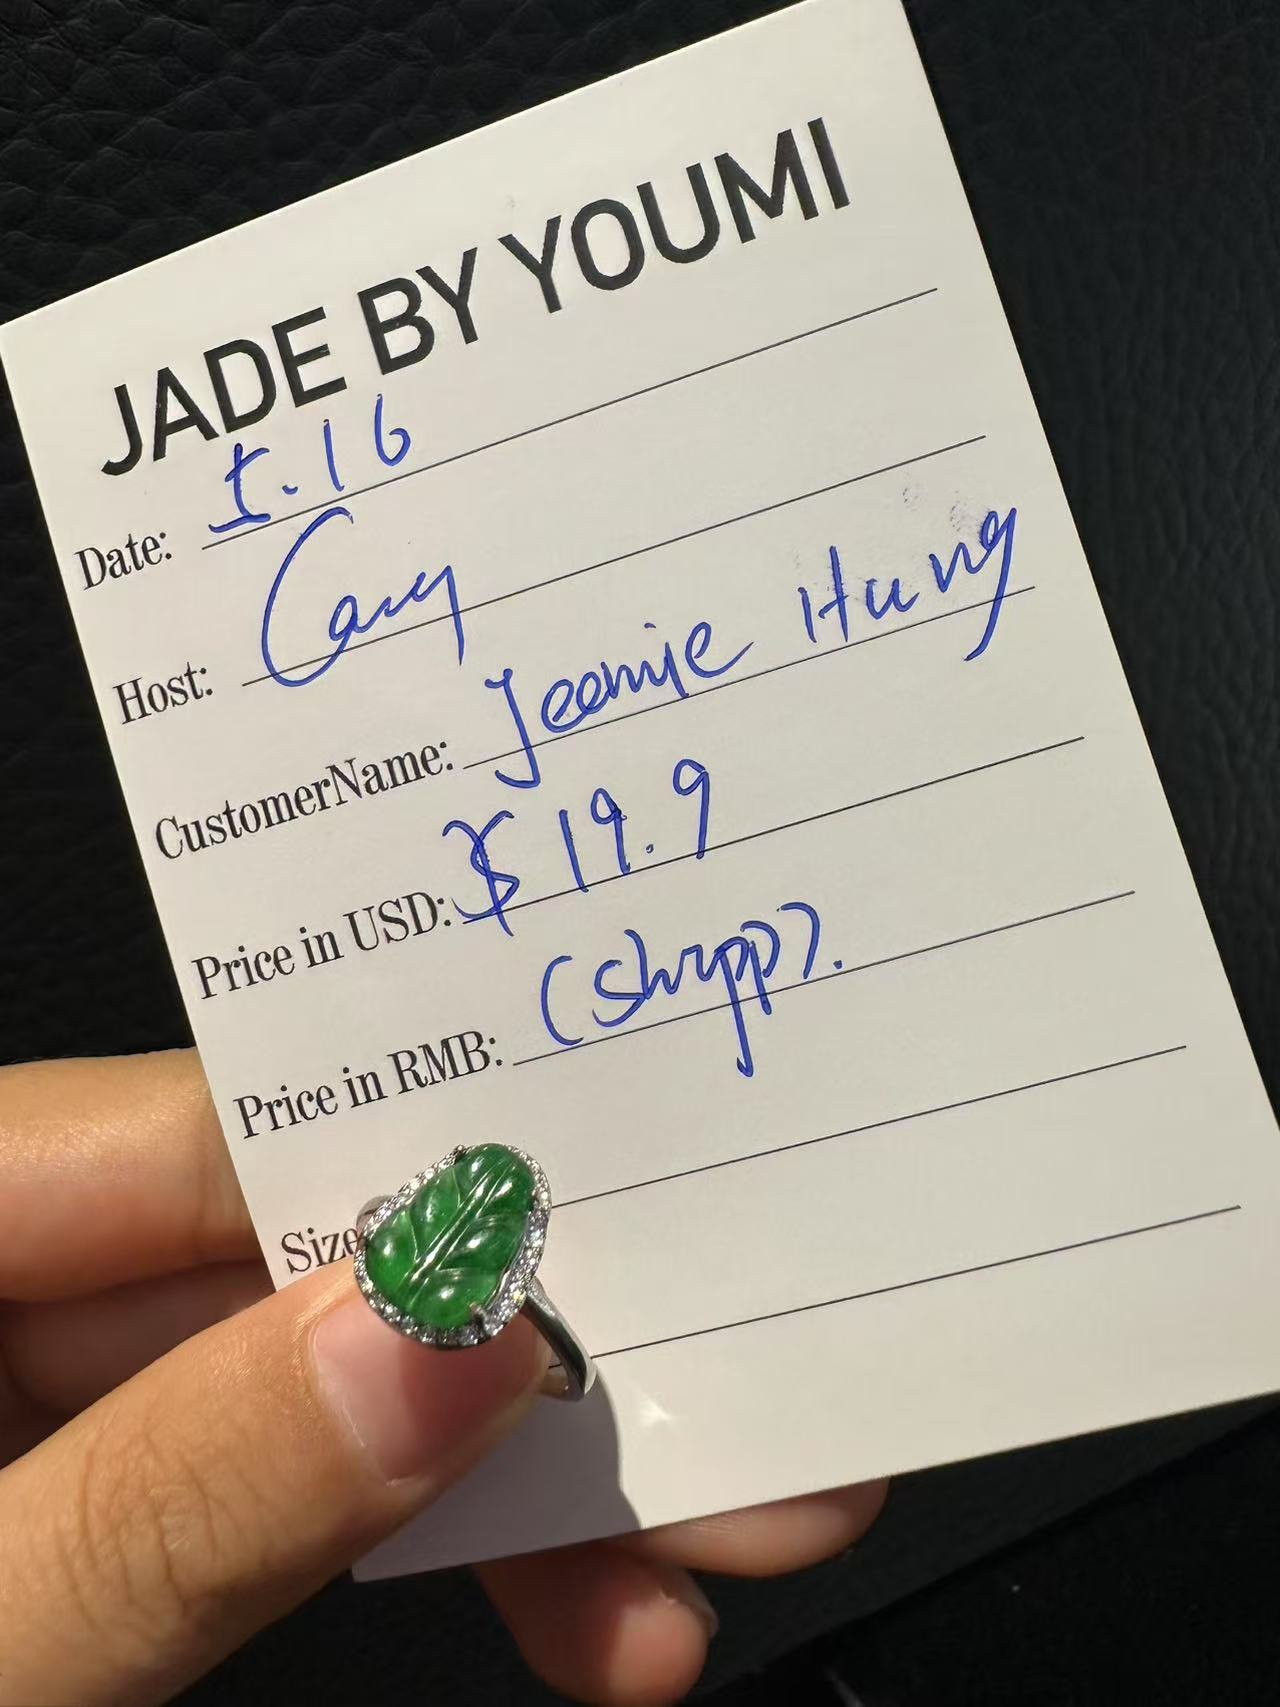 JADE BY YOUMI
Date: 5.16
Host: Cary
CustomerName: Jeemie Hung
Price in USD: $ 19.9
Price in RMB: (Shipp).
Size